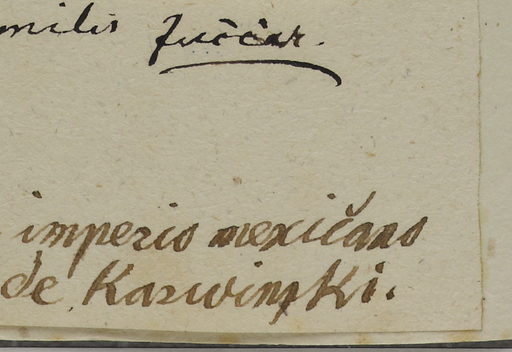 milis Zuccar.
imperio mexicano
de Karwinski.